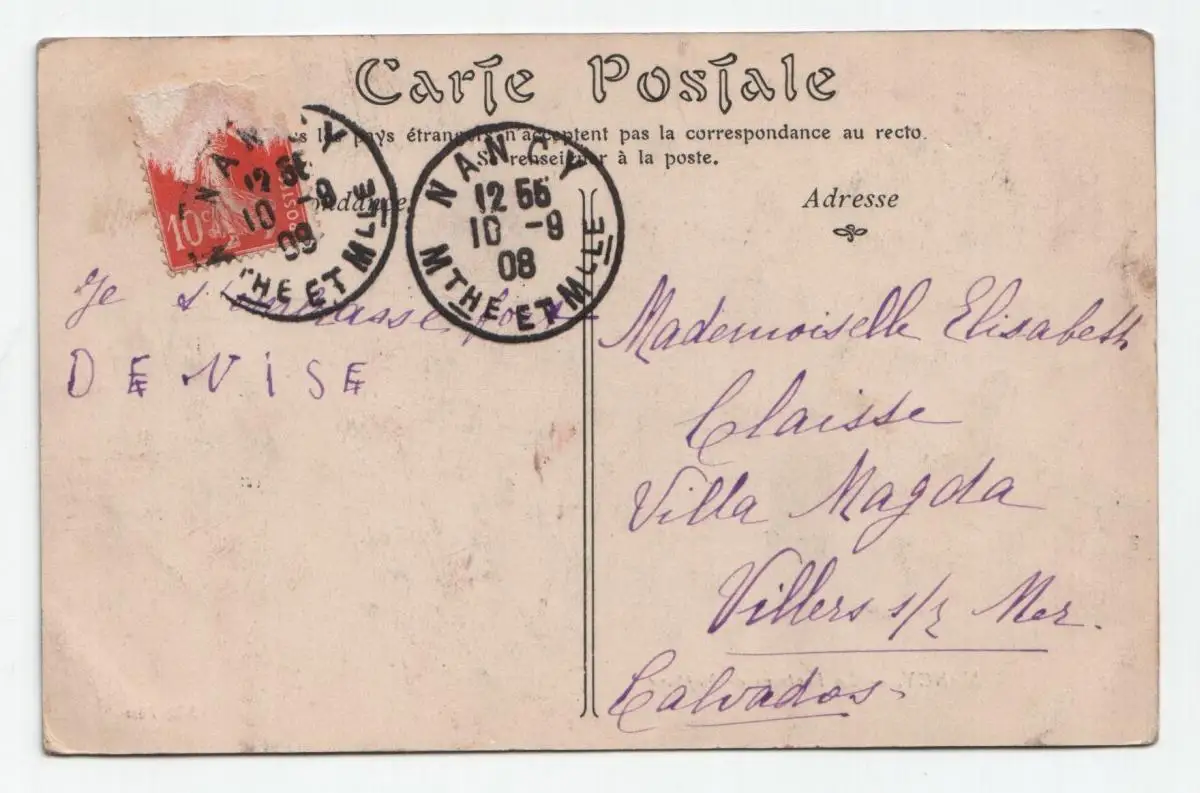 Carte Postale
les pays étrangers n'acceptent pas la correspondance au recto.
Se renseigner à la poste.
NANCY
12 55
10 -9
08
MTHE ET MLLE
NANCY
12 55
10 -9
08
MTHE ET MLLE
10c
POSTES
Adresse
Je
DENISE
Mademoiselle Elisabeth
Claisse
Villa Magda
Villers s/r Mer.
Calvados